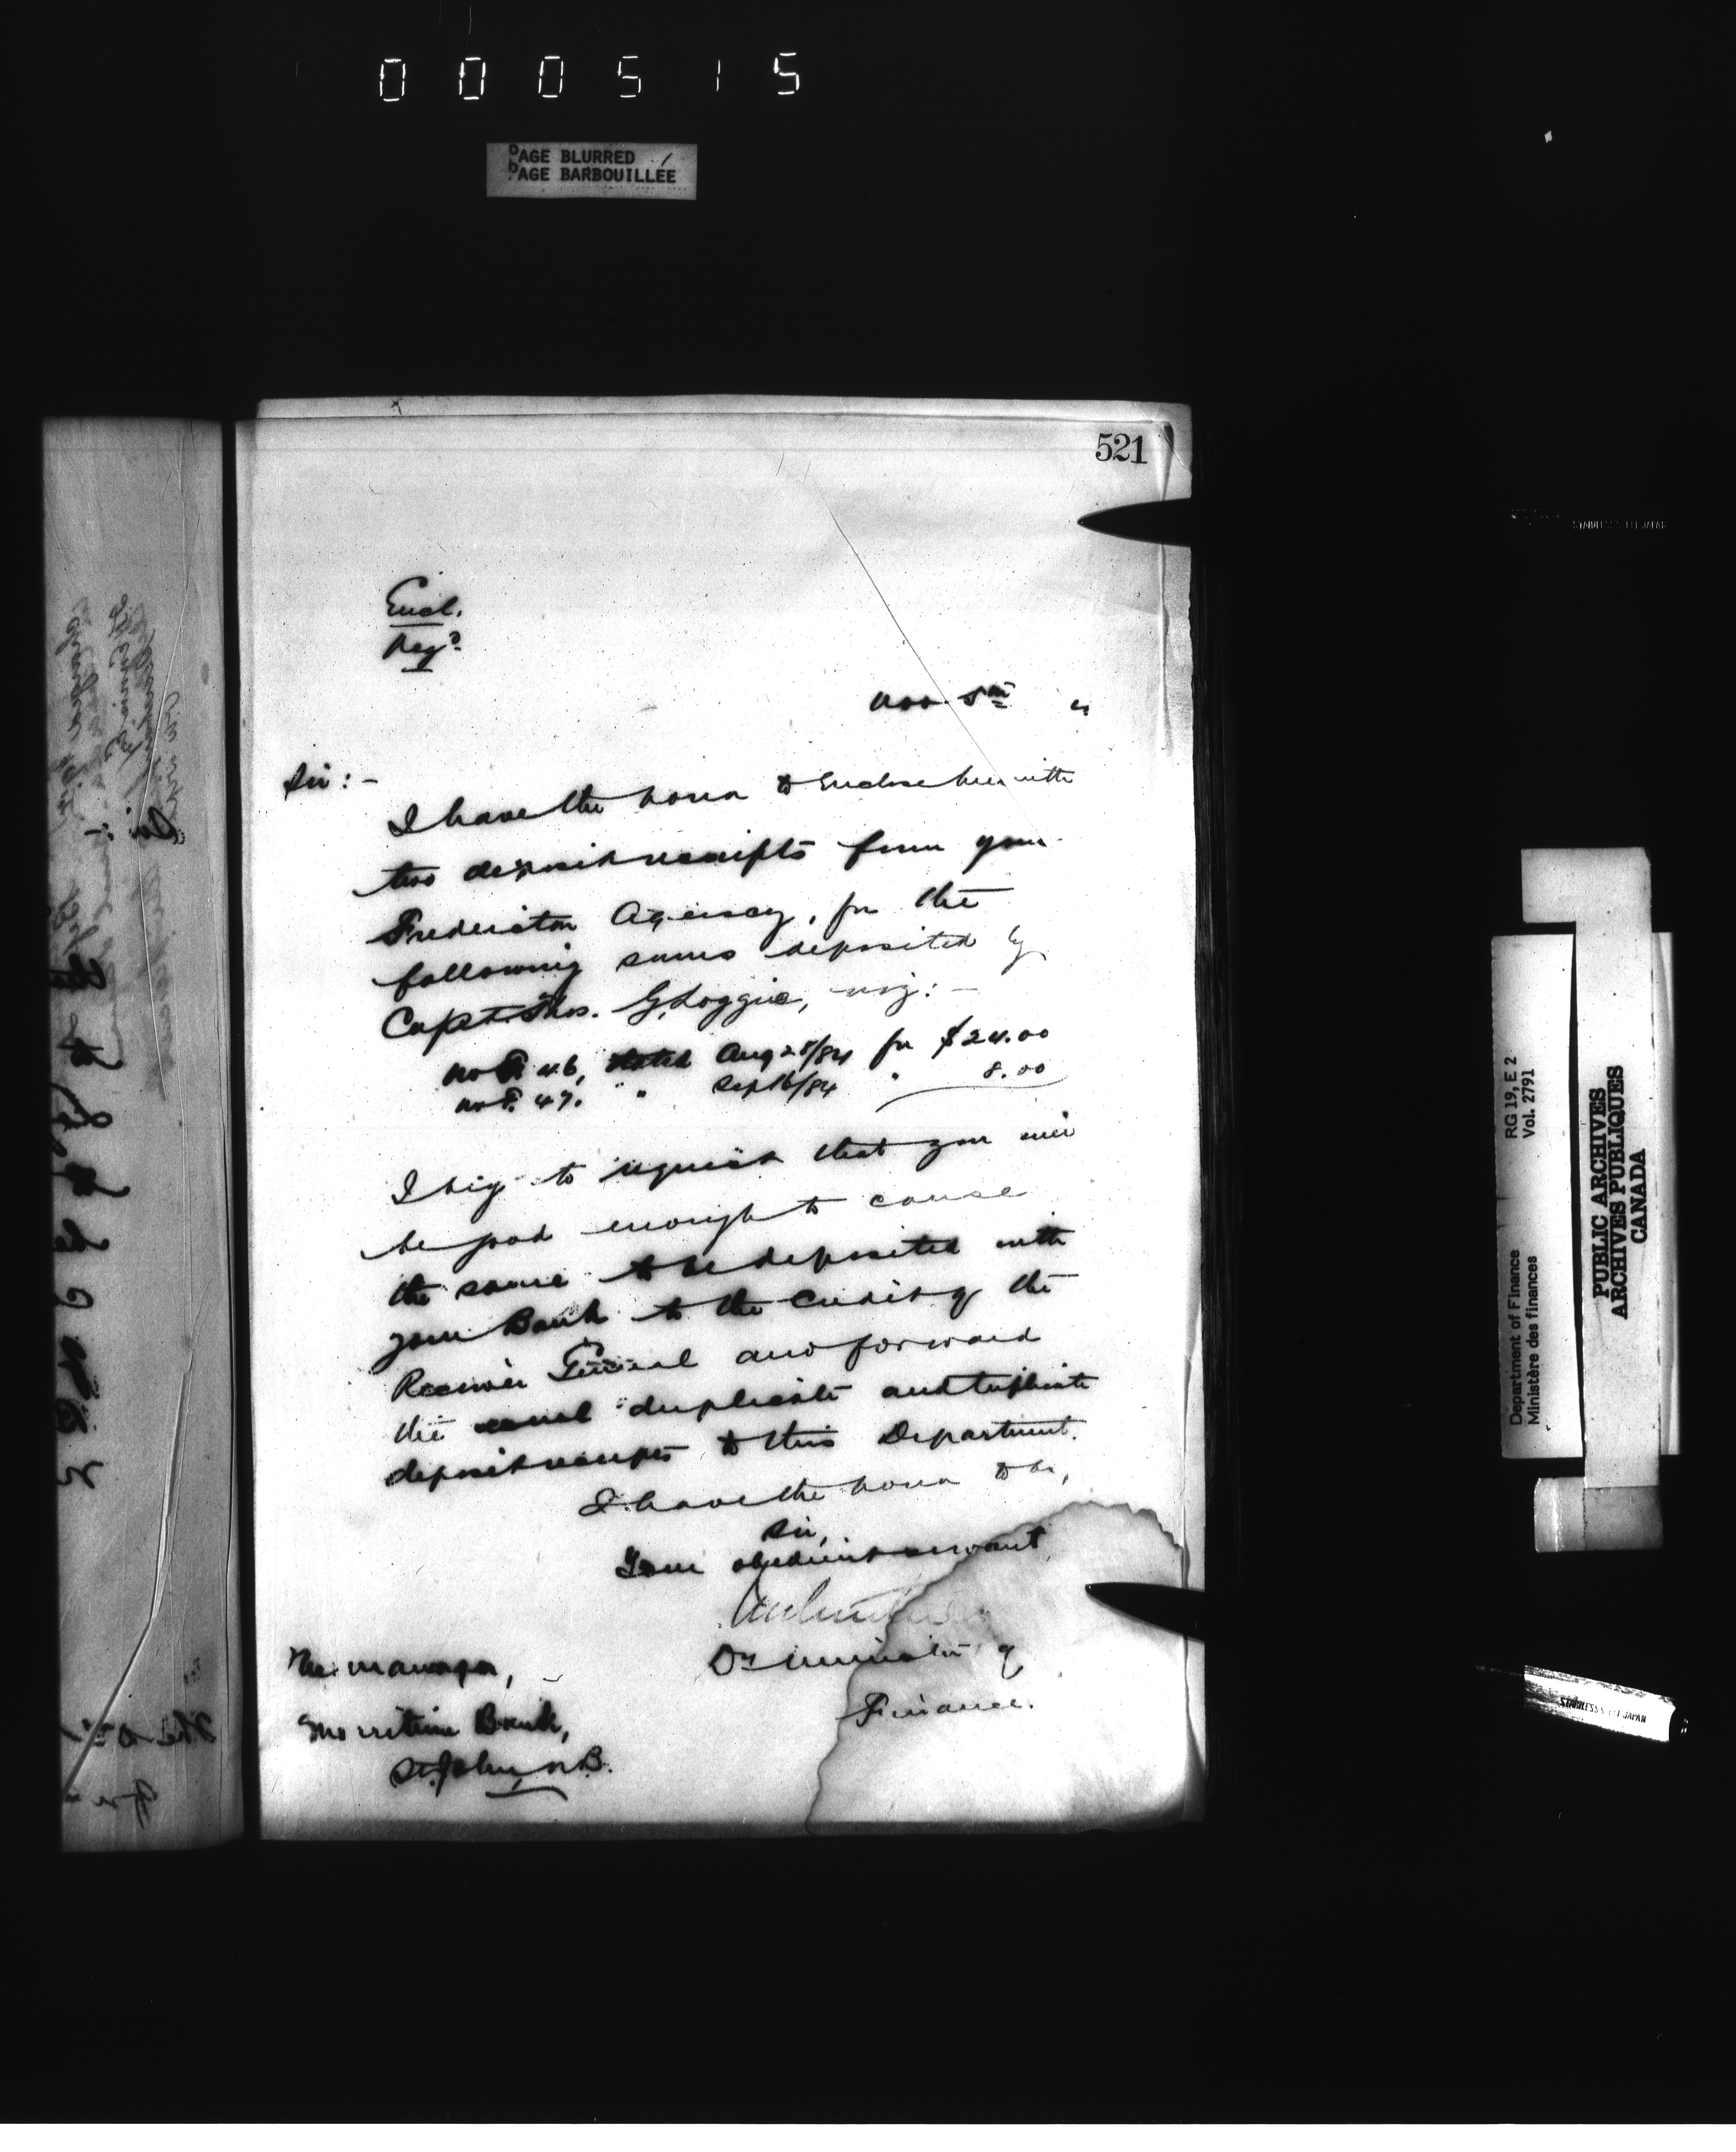 000515
PAGE BLURRED
PAGE BARBOUILLÉE
521
Encl.
Regd.
Nov. 5th 4
Sir:-
I have the honor to enclose herewith
two deposit receipts from your
Fredericton Agency, for the
following sums deposited by
Capt. Thos. G. Loggie, viz:-
No P. 46, dated Aug 28/84 for $24.00
No P. 47. " Sept 16/84 " 8.00
I beg to request that you will
be good enough to cause
the same to be deposited with
your Bank to the credit of the
Receiver General and forward
the usual duplicate and triplicate
deposit receipts to this Department.
I have the honor to be,
Sir,
Your obedient servant
Dy Minister of
Finance.
The Manager,
Maritime Bank,
St. John, N.B.
RG 19, E 2
Vol. 2791
Department of Finance
Ministère des finances
PUBLIC ARCHIVES
ARCHIVES PUBLIQUES
CANADA
STAINLESS STEEL JAPAN
STAINLESS STEEL JAPAN